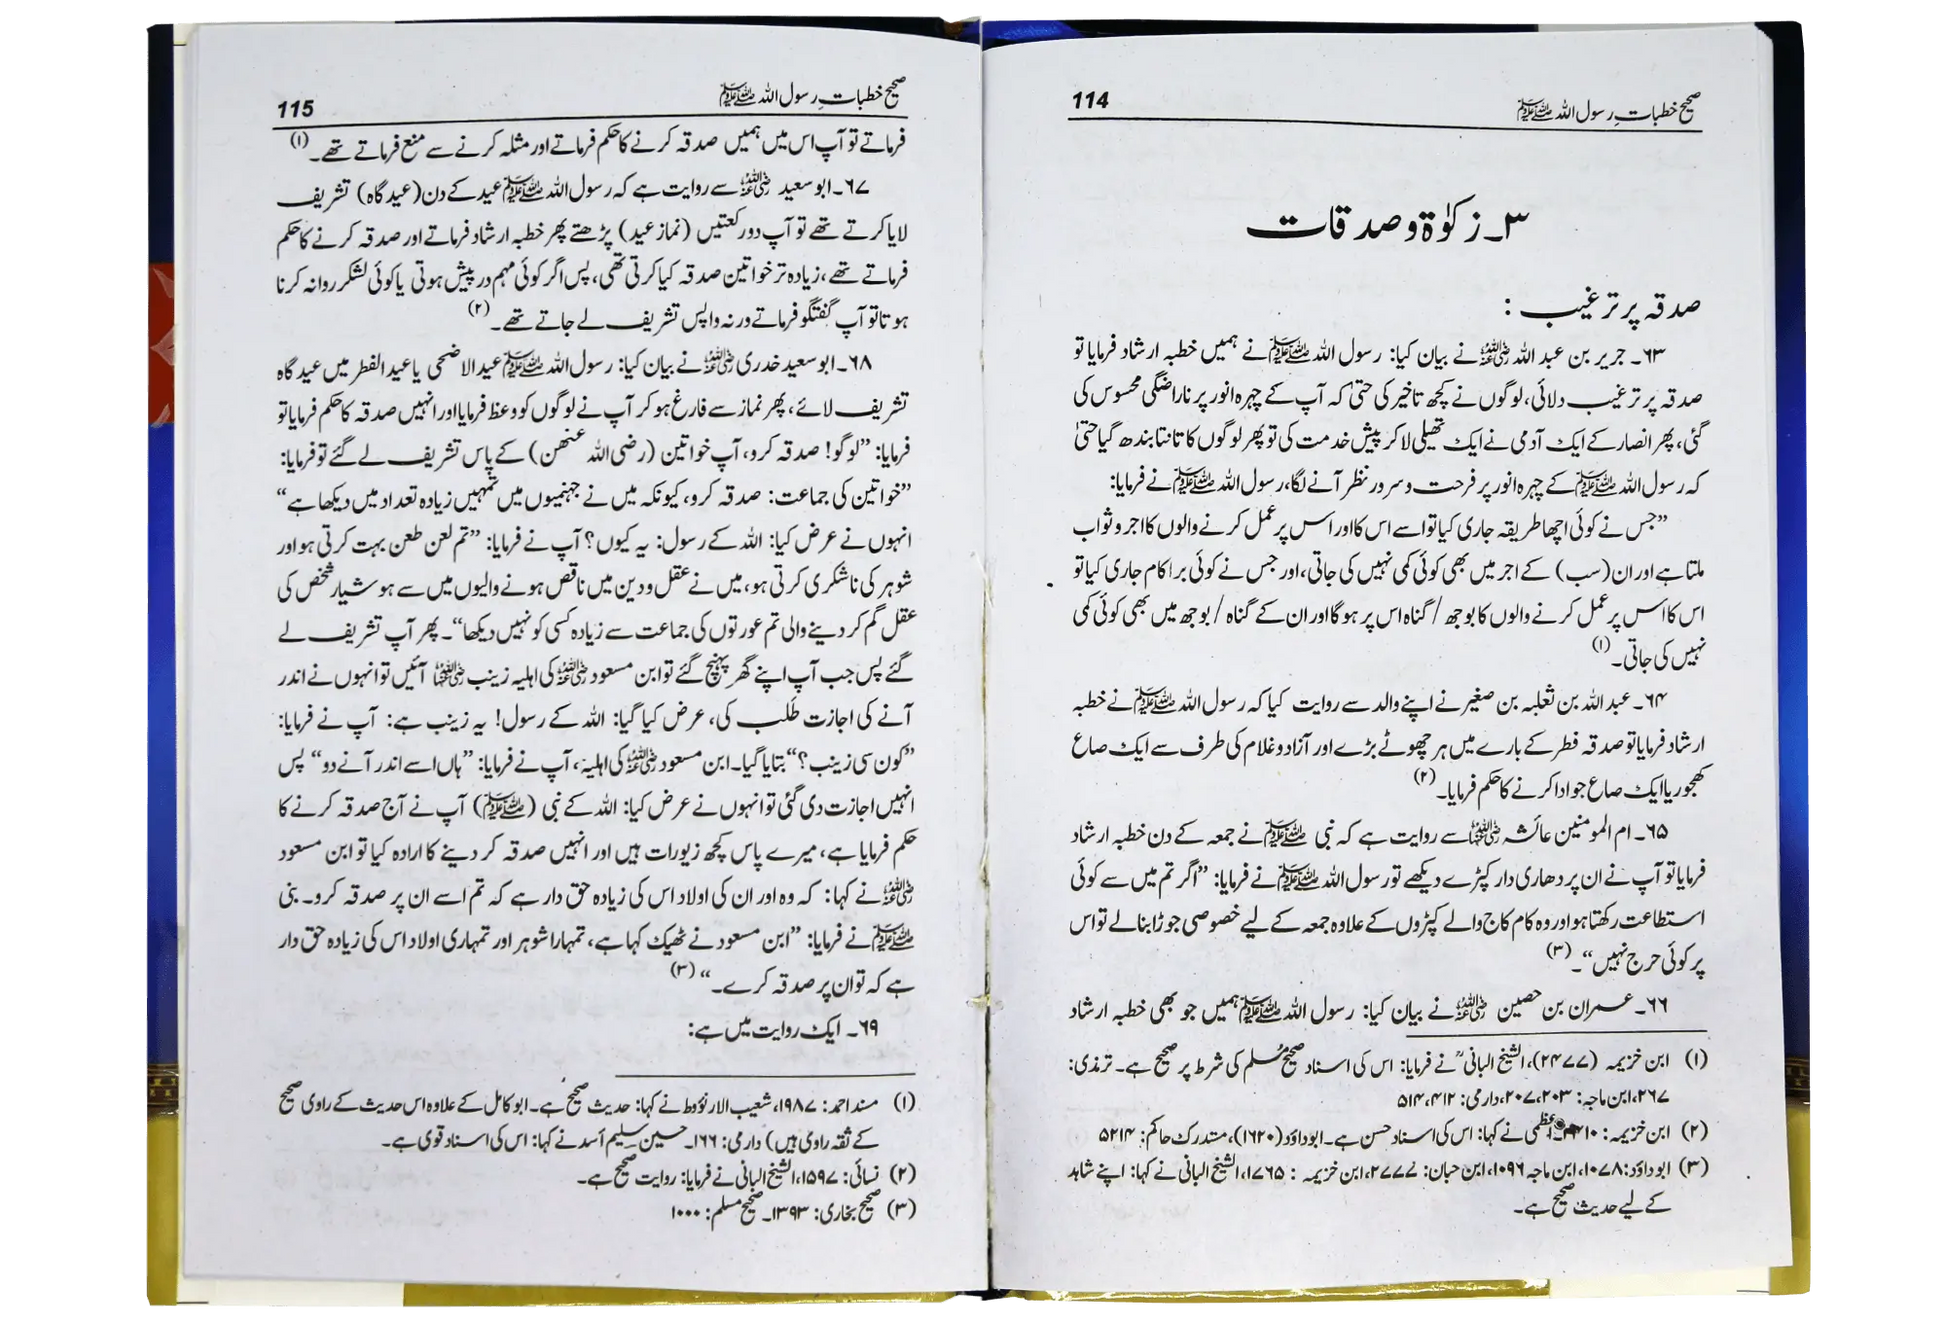 صحیح خطباتِ رسول اللہ ﷺ 114
۳۔ زکوٰۃ و صدقات
صدقہ پر ترغیب :
۶۳۔ جریر بن عبد اللہ رضی اللہ عنہ نے بیان کیا: رسول اللہ ﷺ نے ہمیں خطبہ ارشاد فرمایا تو
صدقہ پر ترغیب دلائی، لوگوں نے کچھ تاخیر کی حتیٰ کہ آپ کے چہرہ انور پر ناراضگی محسوس کی
گئی، پھر انصار کے ایک آدمی نے ایک تھیلی لا کر پیش خدمت کی تو پھر لوگوں کا تانتا بندھ گیا حتیٰ
کہ رسول اللہ ﷺ کے چہرہ انور پر فرحت و سرور نظر آنے لگا، رسول اللہ ﷺ نے فرمایا:
”جس نے کوئی اچھا طریقہ جاری کیا تو اسے اس کا اور اس پر عمل کرنے والوں کا اجر و ثواب
ملتا ہے اور ان (سب) کے اجر میں بھی کوئی کمی نہیں کی جاتی، اور جس نے کوئی برا کام جاری کیا تو
اس کا اس پر عمل کرنے والوں کا بوجھ / گناہ اس پر ہو گا اور ان کے گناہ / بوجھ میں بھی کوئی کمی
نہیں کی جاتی۔ (۱)
۶۴۔ عبد اللہ بن ثعلبہ بن صغیر نے اپنے والد سے روایت کیا کہ رسول اللہ ﷺ نے خطبہ
ارشاد فرمایا تو صدقہ فطر کے بارے میں ہر چھوٹے بڑے اور آزاد و غلام کی طرف سے ایک صاع
کھجور یا ایک صاع جو ادا کرنے کا حکم فرمایا۔ (۲)
۶۵۔ ام المومنین عائشہ رضی اللہ عنہا سے روایت ہے کہ نبی ﷺ نے جمعہ کے دن خطبہ ارشاد
فرمایا تو آپ نے ان پر دھاری دار کپڑے دیکھے تو رسول اللہ ﷺ نے فرمایا: ”اگر تم میں سے کوئی
استطاعت رکھتا ہو اور وہ کام کاج والے کپڑوں کے علاوہ جمعہ کے لیے خصوصی جوڑا بنا لے تو اس
پر کوئی حرج نہیں“۔ (۳)
۶۶۔ عمران بن حصین رضی اللہ عنہ نے بیان کیا: رسول اللہ ﷺ ہمیں جو بھی خطبہ ارشاد
(۱) ابن خزیمہ (۲۴۷۷)، الشیخ البانیؒ نے فرمایا: اس کی اسناد صحیح مسلم کی شرط پر صحیح ہے۔ ترمذی:
۲۶۷، ابن ماجہ: ۲۰۳، ۲۰۷، دارمی: ۵۱۲، ۵۱۴
(۲) ابن خزیمہ: اعظمی نے کہا: اس کی اسناد حسن ہے۔ ابو داؤد (۱۶۲۰)، مستدرک حاکم: ۵۲۱۴
(۳) ابو داؤد: ۱۰۷۸، ابن ماجہ ۱۰۹۶، ابن حبان: ۲۷۷۷، ابن خزیمہ : ۱۷۶۵، الشیخ البانی نے کہا: اپنے شاہد
کے لیے حدیث صحیح ہے۔
صحیح خطباتِ رسول اللہ ﷺ 115
فرماتے تو آپ اس میں ہمیں صدقہ کرنے کا حکم فرماتے اور مثلہ کرنے سے منع فرماتے تھے۔ (۱)
۶۷۔ ابو سعید رضی اللہ عنہ سے روایت ہے کہ رسول اللہ ﷺ عید کے دن (عید گاہ) تشریف
لایا کرتے تھے تو آپ دو رکعتیں (نماز عید) پڑھتے پھر خطبہ ارشاد فرماتے اور صدقہ کرنے کا حکم
فرماتے تھے، زیادہ تر خواتین صدقہ کیا کرتی تھی، پس اگر کوئی مہم در پیش ہوتی یا کوئی لشکر روانہ کرنا
ہوتا تو آپ گفتگو فرماتے ورنہ واپس تشریف لے جاتے تھے۔ (۲)
۶۸۔ ابو سعید خدری رضی اللہ عنہ نے بیان کیا: رسول اللہ ﷺ عید الاضحی یا عید الفطر میں عید گاہ
تشریف لائے، پھر نماز سے فارغ ہو کر آپ نے لوگوں کو وعظ فرمایا اور انہیں صدقہ کا حکم فرمایا تو
فرمایا: ”لوگو! صدقہ کرو، آپ خواتین (رضی اللہ عنھن) کے پاس تشریف لے گئے تو فرمایا:
”خواتین کی جماعت: صدقہ کرو، کیونکہ میں نے جہنمیوں میں تمہیں زیادہ تعداد میں دیکھا ہے“
انہوں نے عرض کیا: اللہ کے رسول: یہ کیوں؟ آپ نے فرمایا: ”تم لعن طعن بہت کرتی ہو اور
شوہر کی ناشکری کرتی ہو، میں نے عقل و دین میں ناقص ہونے والیوں میں سے ہوشیار شخص کی
عقل گم کر دینے والی تم عورتوں کی جماعت سے زیادہ کسی کو نہیں دیکھا“۔ پھر آپ تشریف لے
گئے پس جب آپ اپنے گھر پہنچ گئے تو ابن مسعود رضی اللہ عنہ کی اہلیہ زینب رضی اللہ عنہا آئیں تو انہوں نے اندر
آنے کی اجازت طلب کی، عرض کیا گیا: اللہ کے رسول! یہ زینب ہے: آپ نے فرمایا:
”کون سی زینب؟“ بتایا گیا۔ ابن مسعود رضی اللہ عنہ کی اہلیہ، آپ نے فرمایا: ”ہاں اسے اندر آنے دو“ پس
انہیں اجازت دی گئی تو انہوں نے عرض کیا: اللہ کے نبی (ﷺ) آپ نے آج صدقہ کرنے کا
حکم فرمایا ہے، میرے پاس کچھ زیورات ہیں اور انہیں صدقہ کر دینے کا ارادہ کیا تو ابن مسعود
رضی اللہ عنہ نے کہا: کہ وہ اور ان کی اولاد اس کی زیادہ حق دار ہے کہ تم اسے ان پر صدقہ کرو۔ نبی
ﷺ نے فرمایا: ”ابن مسعود نے ٹھیک کہا ہے، تمہارا شوہر اور تمہاری اولاد اس کی زیادہ حق دار
ہے کہ تو ان پر صدقہ کرے۔“ (۳)
۶۹۔ ایک روایت میں ہے:
(۱) مسند احمد: ۱۹۸۷، شعیب الارنؤوط نے کہا: حدیث صحیح ہے۔ ابو کامل کے علاوہ اس حدیث کے راوی صحیح
کے ثقہ راوی ہیں) دارمی: ۱۶۶۔ حسین سلیم اسد نے کہا: اس کی اسناد قوی ہے۔
(۲) نسائی: ۱۵۹۷، الشیخ البانی نے فرمایا: روایت صحیح ہے۔
(۳) صحیح بخاری: ۱۳۹۳۔ صحیح مسلم: ۱۰۰۰